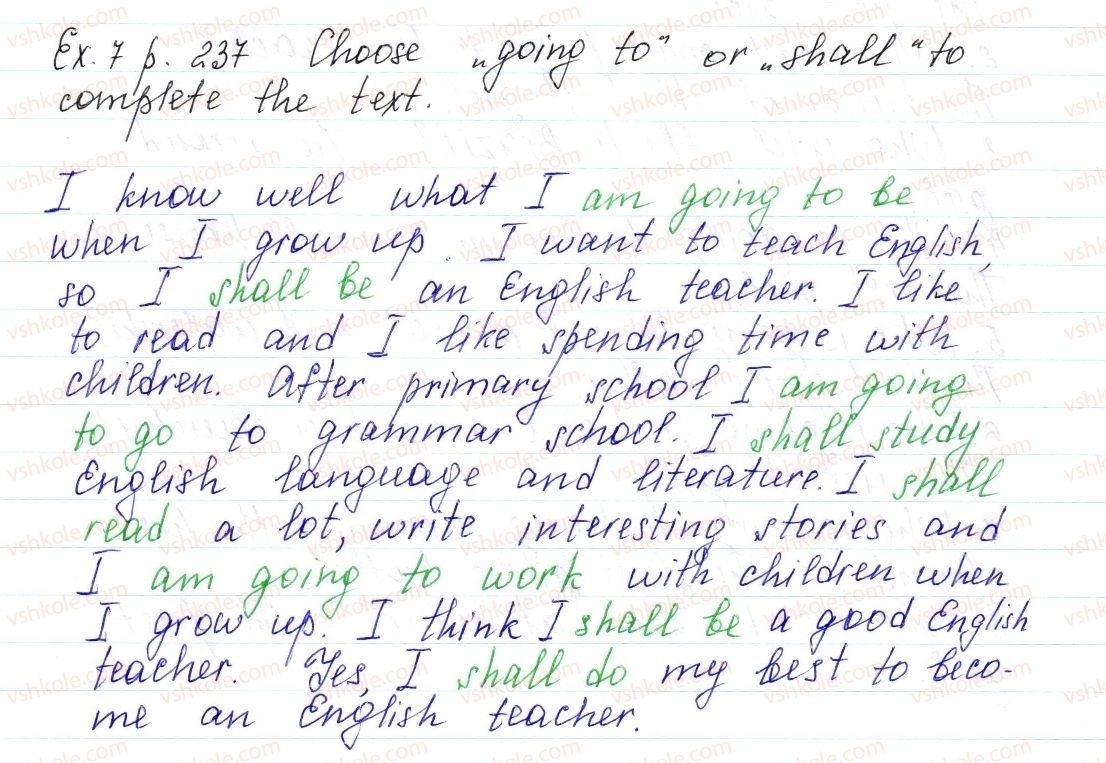 Ex. 7 p. 237 Choose „going to“ or „shall“ to
complete the text.
I know well what I am going to be
when I grow up. I want to teach English,
so I shall be an English teacher. I like
to read and I like spending time with
children. After primary school I am going
to go to grammar school. I shall study
English language and literature. I shall
read a lot, write interesting stories and
I am going to work with children when
I grow up. I think I shall be a good English
teacher. Yes, I shall do my best to beco-
me an English teacher.